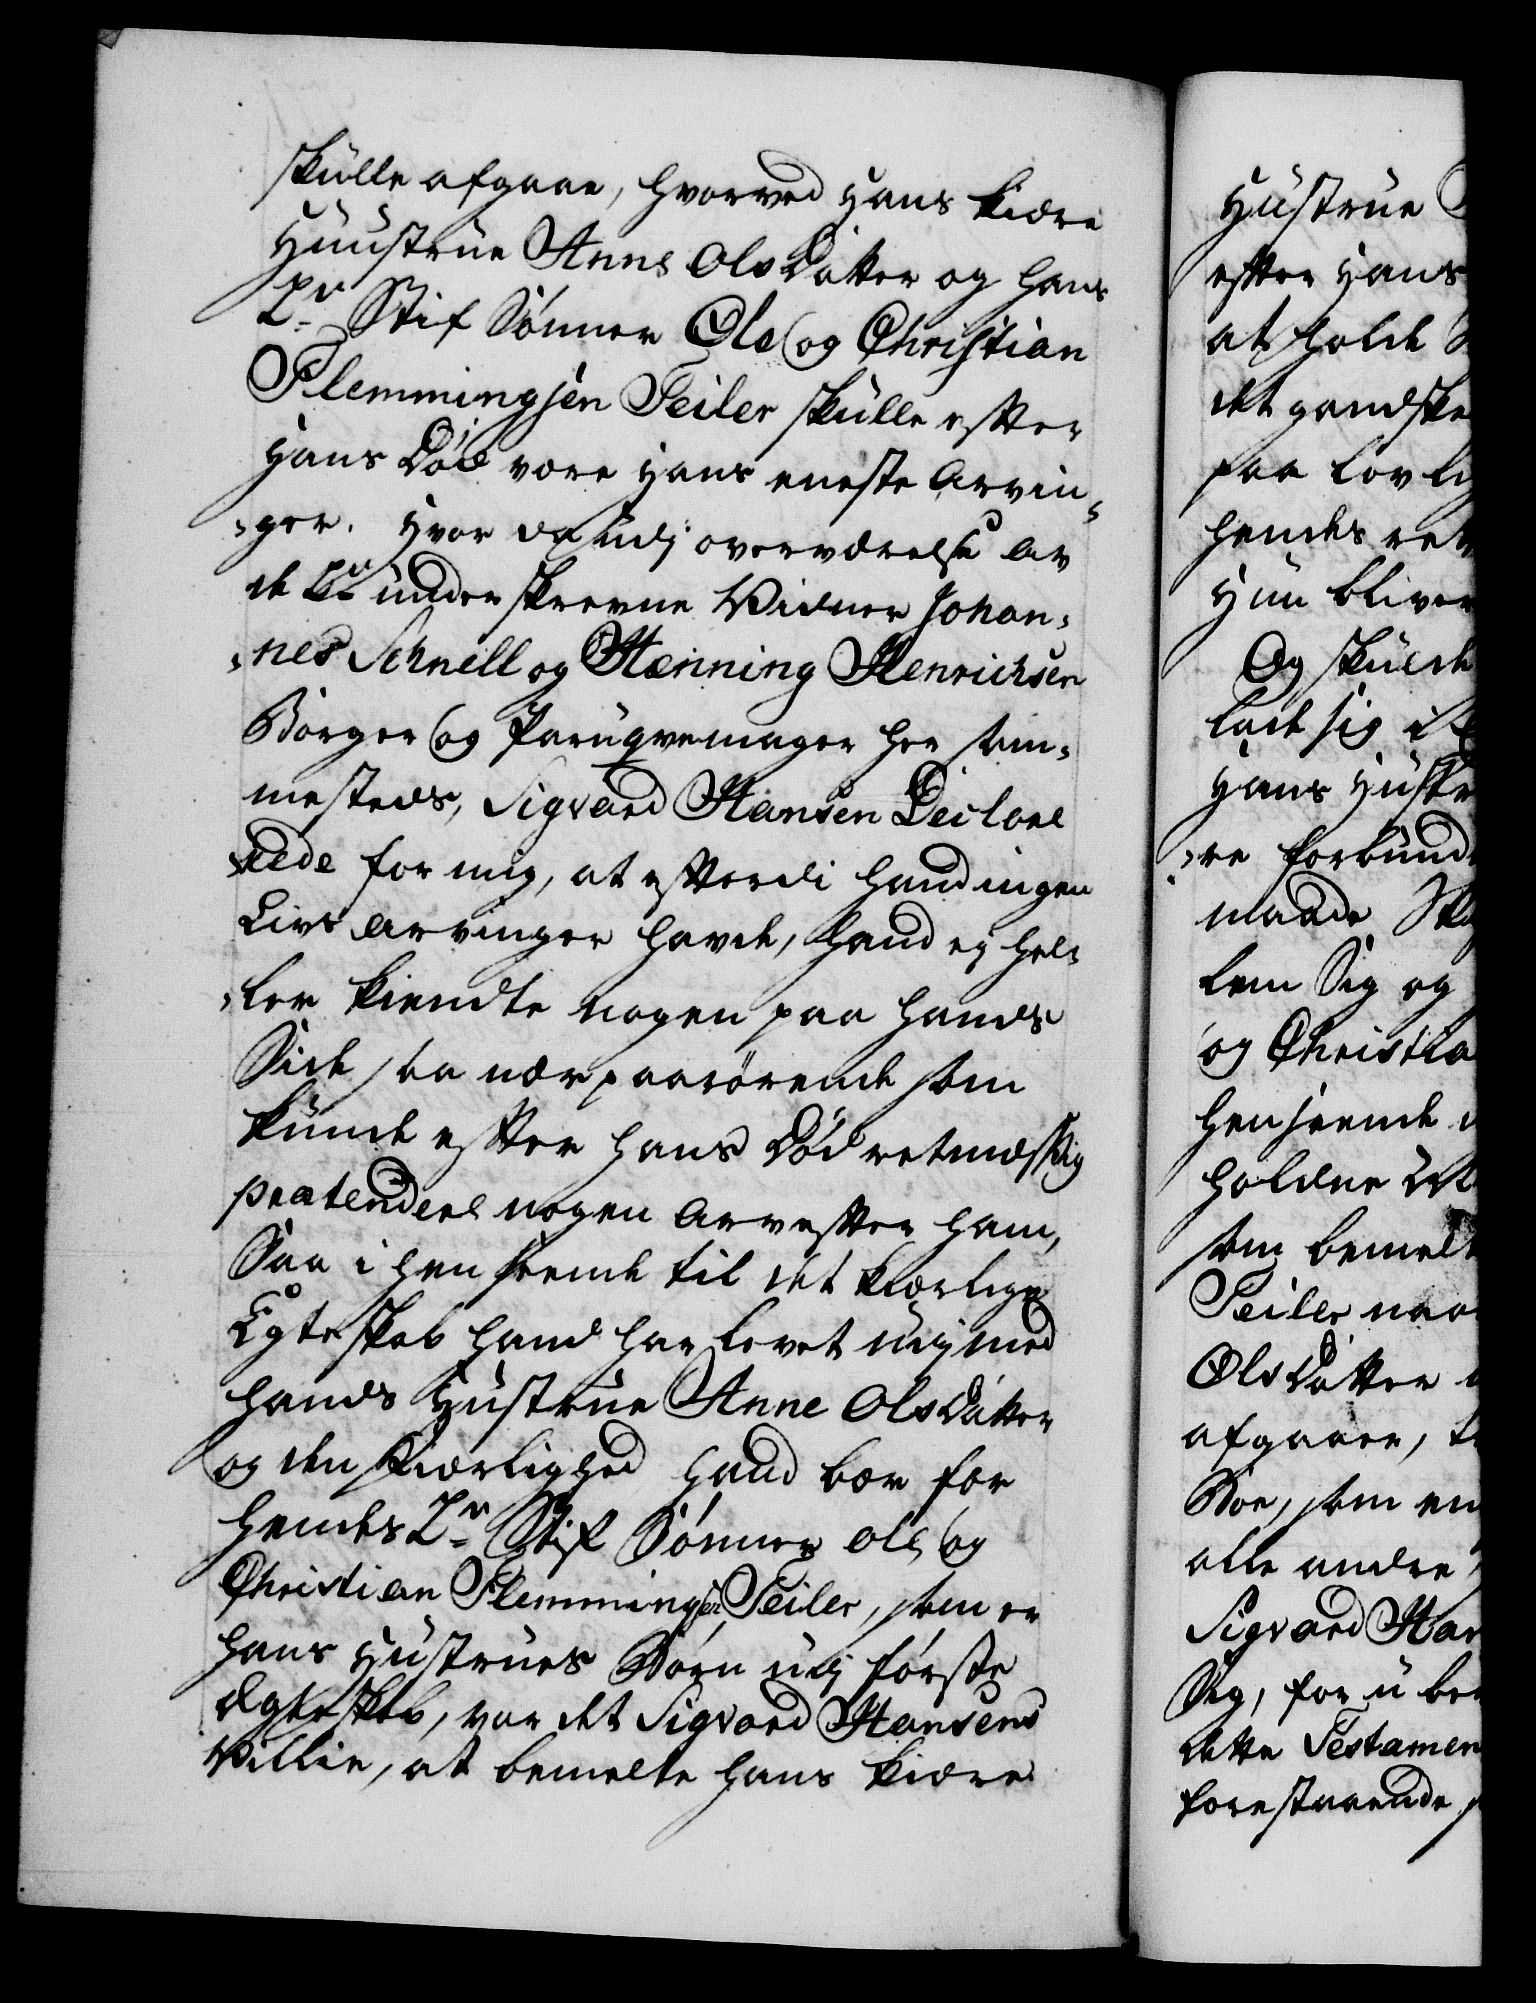 skulle afgaae, hvorved Hans kiære
Huustrue Anne OlsDatter og hans
2de Stif Sönner Ole og Christian
Flemmingsen Feiler skulle efter
Hans Död være Hans eneste Arvin-
-ger. Hvor da udj overværelse av
de 2de underskrevne Vidner Johan-
-nes Schnell og Hænning Henrichsen
Borger og Paruqvemager her sam-
mesteds, Sigvard Hansen Declare
rede for mig, at efterdi hand ingen
Livs Arvinger havde, hand ej hel-
-ler kiendte nogen paa hands
Side saa nær paarörende som
kunde efter hans Död retmæssig
prætendere nogen Arv efter ham,
Saa i henseende til det kiærlige
Egteskab hand har levet udj med
hands Hustrue Anne OlsDatter
og den Kiærlighed hand bær for
hendes 2de Stif Sönner Ole og
Christian Flemmingsen Feiler, som er
hans Hustrues Börn udj förste
Ægteskab, var det Sigvard Hansens
Villie, at bemelte hans kiære
Hustrue
efter Hans
at holde
det gandske
paa lovli
hendes ret
Hun bliver
Og skulde
lade sig i
Hans Hustr
-re forbund
maade
lem Sig og
og Christia
henseende
holdne
som bemelt
Feiler naa
OlsDatter
afgaaer,
Boe, som en
alle andre
Sigvard Han
Sig, for u be
dette Testamen
forestaaende